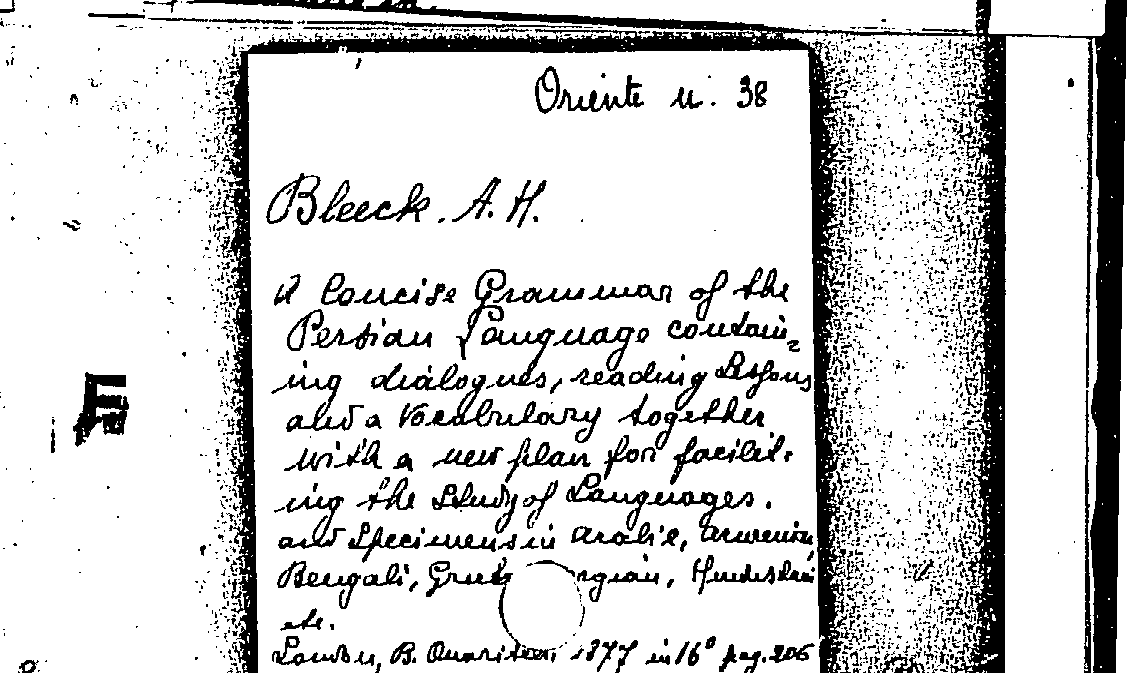 Oriente n. 38
Bleeck. A. H.
A Concise Grammar of the
Persian Language contain=
ing dialogues, reading Lessons
and a Vocabulary together
with a new plan for facilit.
ing the Study of Languages.
and Specimens in Arabic, Armenian,
Bengali, Greek rgian, Hindustani
etc.
London, B. Quaritch 1877 in 16° pag. 206